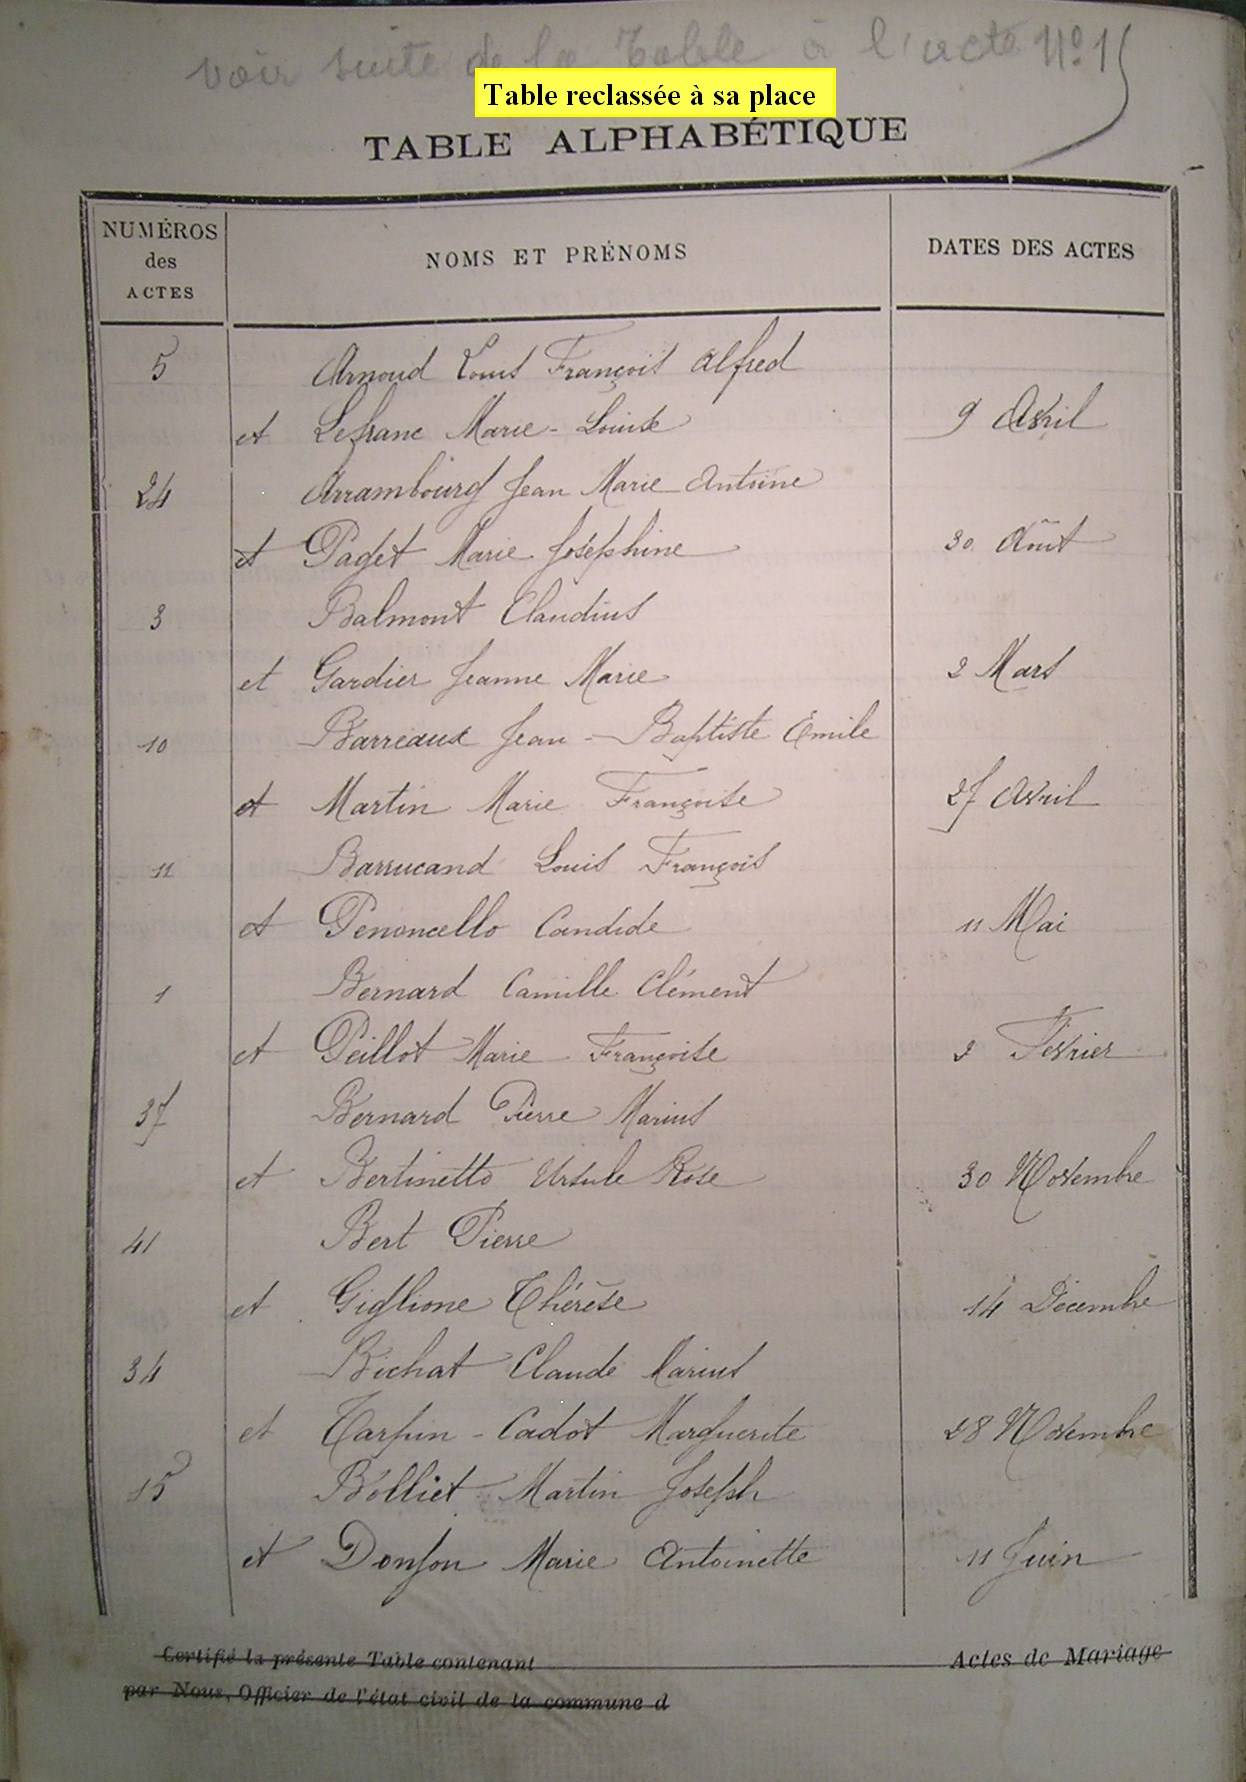 voir suite de la Table à l'acte N° 15
Table reclassée à sa place
TABLE ALPHABÉTIQUE
NUMÉROS des ACTES NOMS ET PRÉNOMS DATES DES ACTES
5 Arnoud Louis François Alfred
et Lefranc Marie-Louise 9 Avril
24 Arrambourg Jean Marie Antoine
et Paget Marie Joséphine 30 Août
3 Balmont Claudius
et Gardier Jeanne Marie 2 Mars
10 Barreaux Jean-Baptiste Emile
et Martin Marie Françoise 27 Avril
11 Barrucand Louis François
et Penoncello Candide 11 Mai
1 Bernard Camille Clément
et Peillot Marie Françoise 2 Février
37 Bernard Pierre Marius
et Bertinetto Ursule Rose 30 Novembre
41 Bert Pierre
et Giglione Thérèse 14 Décembre
34 Bichat Claude Marius
et Tarpin-Cadot Marguerite 28 Novembre
15 Bolliet Martin Joseph
et Donjon Marie Antoinette 11 Juin
Certifié la présente Table contenant Actes de Mariage
par Nous, Officier de l'état civil de la commune d